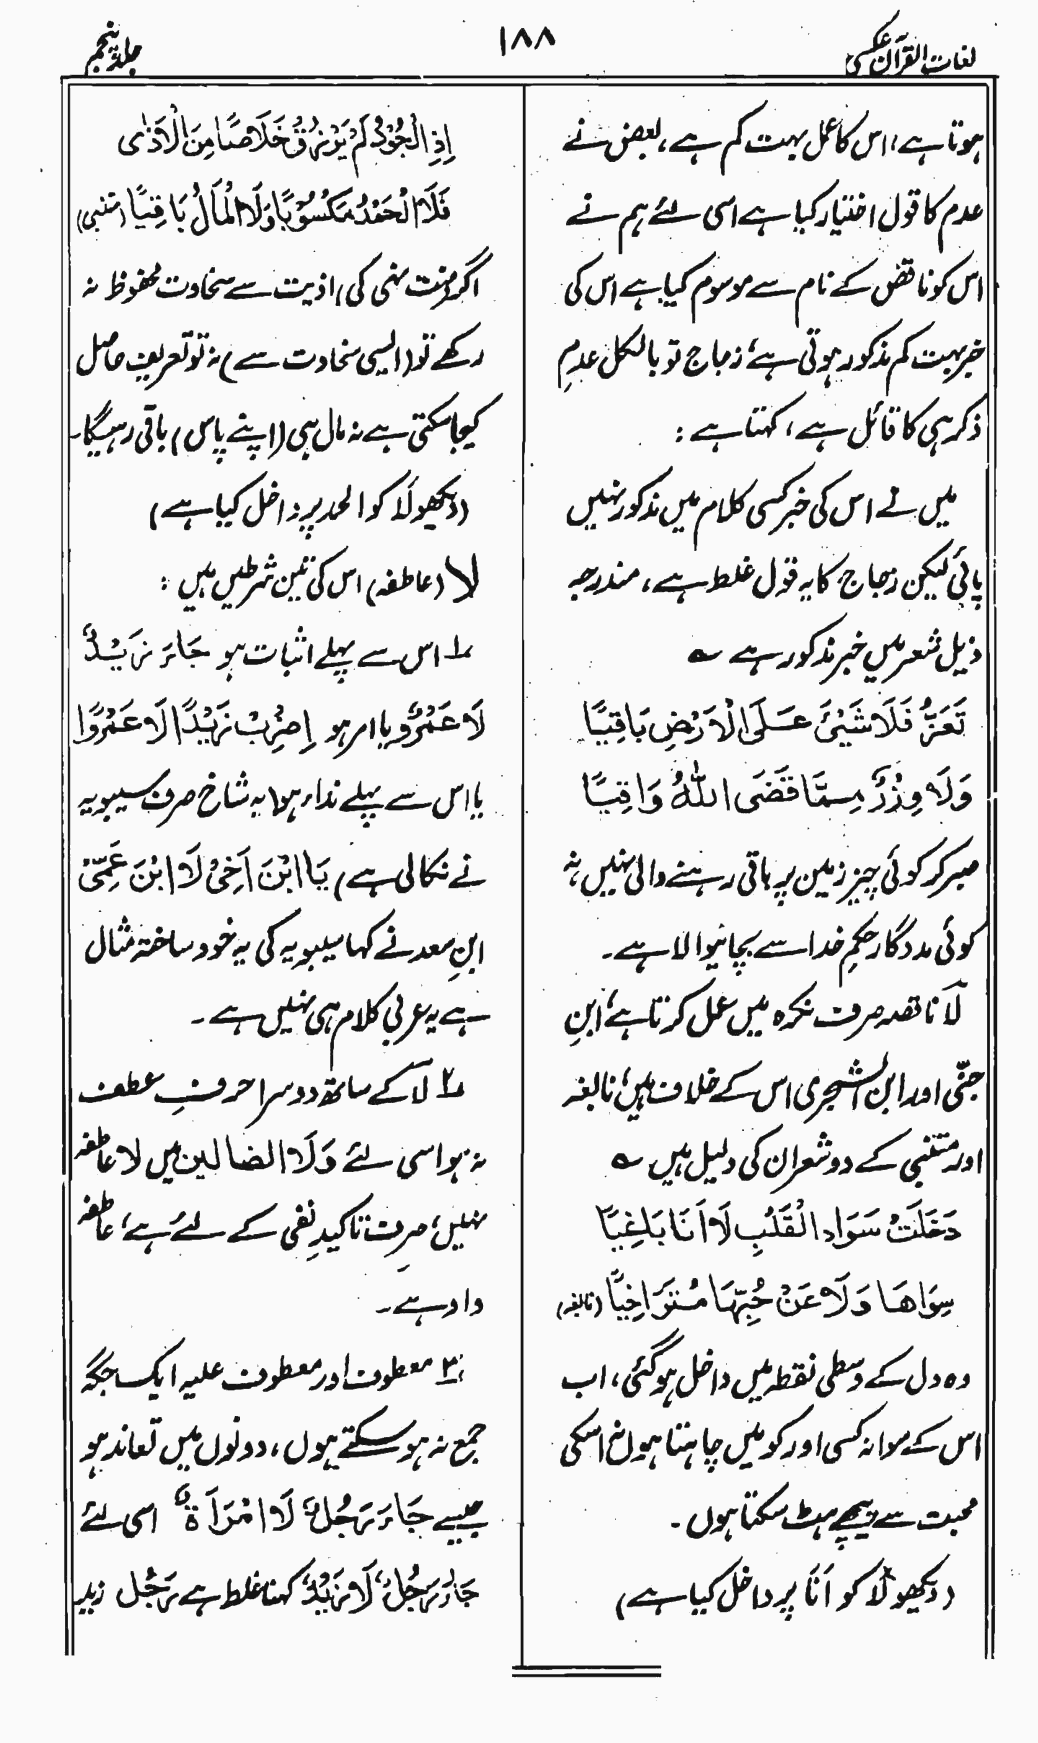 لغات القرآن عکسی
۱۸۸
جلد پنجم
ہوتا ہے، اس کا عمل بہت کم ہے، بعض نے
عدم کا قول اختیار کیا ہے اسی لئے ہم نے
اس کو ناقص کے نام سے موسوم کیا ہے اس کی
خبر بہت کم مذکور ہوتی ہے، زجاج تو بالکل عدمِ
ذکر ہی کا قائل ہے، کہتا ہے :
میں نے اس کی خبر کسی کلام میں مذکور نہیں
پائی لیکن زجاج کا یہ قول غلط ہے، مندرجہ
ذیل شعر میں خبر مذکور ہے ؎
تَعَزَّ فَلَا شَیْئَ عَلَی الْاَرْضِ بَاقِیًا
وَلَا وِزْرٌ مِمَّا قَضَی اللّٰہُ وَاقِیًا
صبر کر کوئی چیز زمین پر باقی رہنے والی نہیں نہ
کوئی مددگار حکمِ خدا سے بچانیوالا ہے۔
لَا ناقصہ صرف نکرہ میں عمل کرتا ہے، ابنِ
جنّی اور ابن الشجری اس کے خلاف ہیں، نابغہ
اور متنبی کے دو شعر ان کی دلیل ہیں ؎
دَخَلَتْ سَوَادِ الْقَلْبِ لَا اَنَا بَاغِیًا
سِوَاھَا وَلَا عَنْ حُبِّہَا مُتَرَاخِیًا (نابغہ)
وہ دل کے وسطی نقطہ میں داخل ہوگئی، اب
اس کے سوا نہ کسی اور کو میں چاہتا ہوں نہ اسکی
محبت سے پیچھے ہٹ سکتا ہوں۔
(دیکھو لَا کو اَنَا پر داخل کیا ہے)
اِذِ الْجُوْدُ لَمْ یَرْزُقْ خَلَاصًا مِنَ الْاَذٰی
فَلَا الْحَمْدُ مَکْسُوْبًا وَلَا الْمَالُ بَاقِیًا (متنبی)
اگر (منت نہی کی) اذیت سے سخاوت محفوظ نہ
رکھے تو (ایسی سخاوت سے) نہ تو تعریف حاصل
کیجاسکتی ہے نہ مال ہی (اپنے پاس) باقی رہیگا۔
(دیکھو لَا کو الحمد پر داخل کیا ہے)
لا (عاطفہ) اس کی تین شرطیں ہیں :
۱؎ اس سے پہلے اثبات ہو جَاءَ زَیْدٌ
لَا عَمْرٌو یا امر ہو اِضْرِبْ زَیْدًا لَا عَمْرًوا
یا اس سے پہلے نداء ہو (یہ شاخ صرف سیبویہ
نے نکالی ہے) یَا ابْنَ اَخِیْ لَا ابْنَ عَمِّیْ
ابنِ سعد نے کہا سیبویہ کی یہ خود ساختہ مثال
ہے یہ عربی کلام ہی نہیں ہے۔
۲؎ لَا کے ساتھ دوسرا حرفِ عطف
نہ ہو اسی لئے وَلَا الضالین میں لا عاطفہ
نہیں، صرف تاکیدِ نفی کے لئے ہے، عاطفہ
واو ہے۔
۳؎ معطوف اور معطوف علیہ ایک جگہ
جمع نہ ہو سکتے ہوں، دونوں میں تعاند ہو
جیسے جَاءَ رَجُلٌ لَا امْرَأَۃٌ اسی لئے
جَاءَ رَجُلٌ لَا زَیْدٌ کہنا غلط ہے رَجُل زید